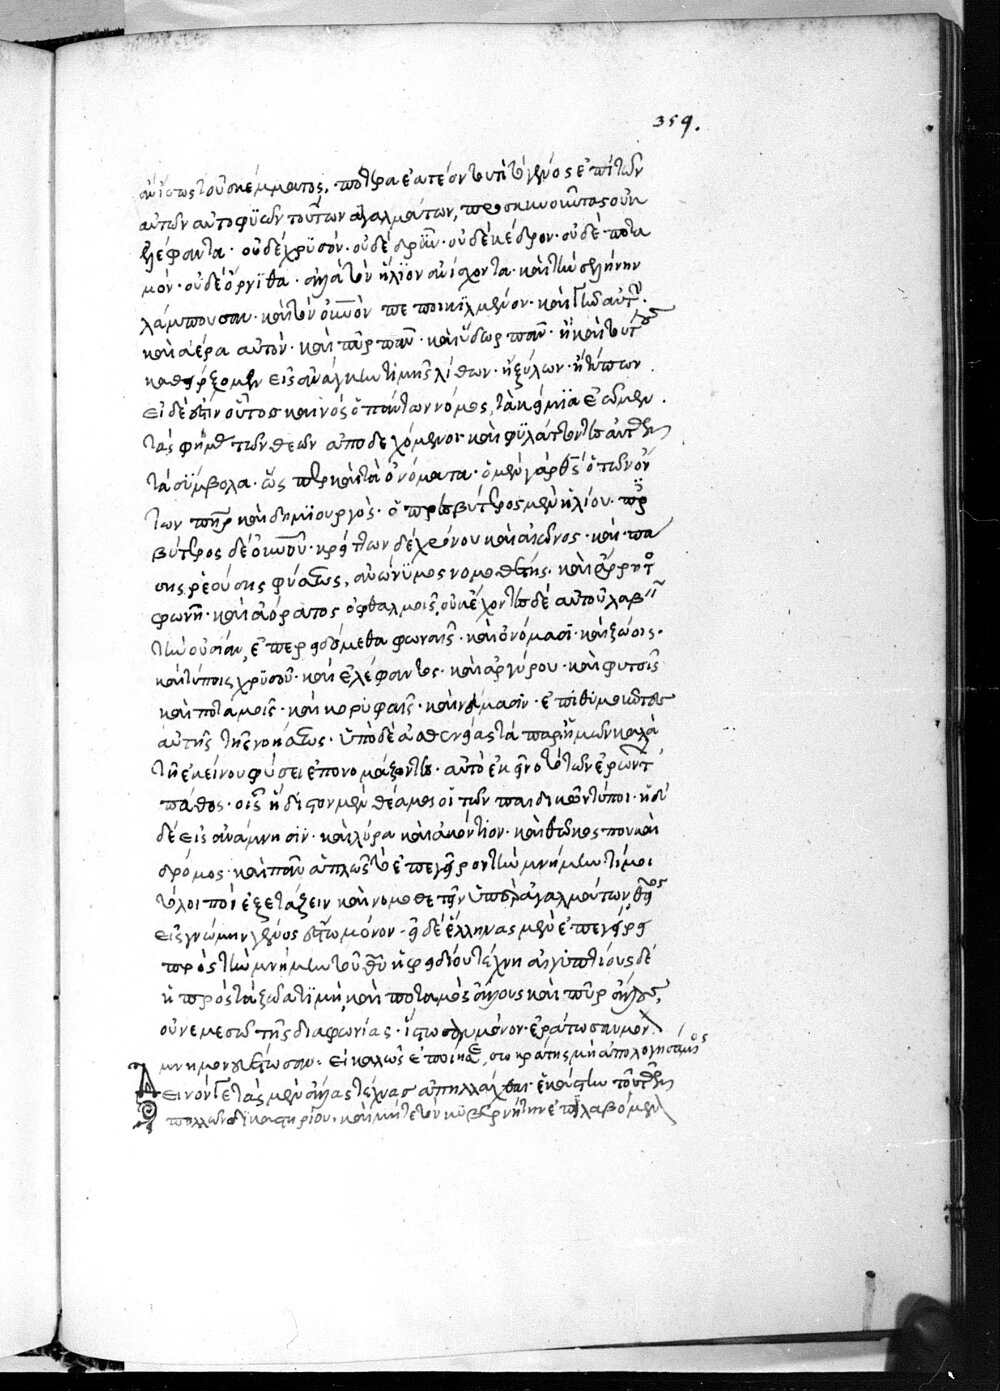 359.
ἀνίσως τοῦ σκέμματος. πότερα ἐατέον τουτὶ τὸ γένος ἐπὶ τῶν
αὐτῶν αὐτοφυῶν τούτων ἀγαλμάτων, προσκυνοῦντας οὐκ
ἐλέφαντα· οὐδὲ χρυσόν· οὐδὲ δρῦν· οὐδὲ κέδρον· οὐδὲ ποτα
μόν· οὐδὲ ὄρνιθα· ἀλλὰ τὸν ἥλιον ἀνίσχοντα· καὶ τὴν σελήνην
λάμπουσαν· καὶ τὸν οὐνὸν πεποικιλμένον· καὶ γῆν αὐτὴν·
καὶ ἀέρα αὐτὸν· καὶ πῦρ πᾶν· καὶ ὕδωρ πᾶν· ἢ καὶ τούτους
καθείρξομεν εἰς ἀνάγκην τιμῆς λίθων· ἢ ξύλων· ἢ τύπων
εἰ δέ ἐστιν οὗτος κοινὸς ὁ πάντων νόμος, τὰ κείμενα ἐῶμεν
τὰς φήμας τῶν θεῶν ἀποδεχόμενοι· καὶ φυλάττοντες αὐτῶν
τὰ σύμβολα· ὥσπερ καὶ τὰ ὀνόματα· ὁ μὲν γὰρ θς ὁ τῶν ὄν
των πηρ καὶ δημιουργὸς· ὁ πρεσβύτερος μὲν ἡλίου· πρεσ
βύτερος δὲ οὐνοῦ· κρείττων δὲ χρόνου καὶ αἰῶνος· καὶ πά
σης ῥεούσης φύσεως, ἀνώνυμος νομοθέτης· καὶ ἄρρητος
φωνῇ· καὶ ἀόρατος ὀφθαλμοῖς. οὐκ ἔχοντες δὲ αὐτοῦ λαβεῖν
τὴν οὐσίαν, ἐπερειδόμεθα φωναῖς· καὶ ὀνόμασι· καὶ ζώοις·
καὶ τύποις χρυσοῦ· καὶ ἐλέφαντος· καὶ ἀργύρου· καὶ φυτοῖς
καὶ ποταμοῖς· καὶ κορυφαῖς· καὶ νάμασιν· ἐπιθυμοῦντες
αὐτῆς τῆς νοήσεως· ὑπὸ δὲ ἀσθενείας τὰ παρ' ἡμῶν καλὰ
τῇ ἐκείνου φύσει ἐπονομάζοντες· αὐτὸ ἐκεῖνο τὸ τῶν ἐρώντων
πάθος· οἷς ἥδιστον μὲν θέαμα οἱ τῶν παιδικῶν τύποι· ἡδὺ
δὲ εἰς ἀνάμνησιν· καὶ λύρα καὶ ἀκόντιον· καὶ θῶκος που καὶ
δρόμος· καὶ πᾶν ἁπλῶς τὸ ἐπεγεῖρον τὴν μνήμην τί μοι
τὸ λοιπὸν ἐξετάζειν καὶ νομοθετεῖν ὑπὲρ ἀγαλμάτων, θεῖος
εἰς γνώμην γένος ἔστω μόνον· εἰ δὲ ἕλληνας μὲν ἐπεγείρει
πρὸς τὴν μνήμην τοῦ θυ ἡ φειδίου τέχνη αἰγυπτίους δὲ
ἡ πρὸς τὰ ζῶα τιμή, καὶ ποταμὸς ἄλλους καὶ πῦρ ἄλλους,
οὐ νεμεσῶ τῆς διαφωνίας· ἴστωσαν μόνον· ἐράτωσαν μόνον·
μνημονευέτωσαν· εἰ καλῶς ἐποίησε σωκράτης μὴ ἀπολογησάμενος
Δεινόν γε τὰς μὲν ἄλλας τέχνας ἀπηλλάχθαι ἑκάστην τοῦ τῶν
πολλῶν δικαστηρίου· καὶ μήτε τὸν κυβερνήτην ἐπιλαβόμενον